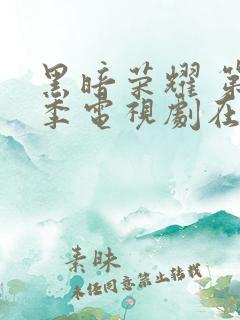 黑暗荣耀 第
季電視劇在
素昧
未经同意禁止转载